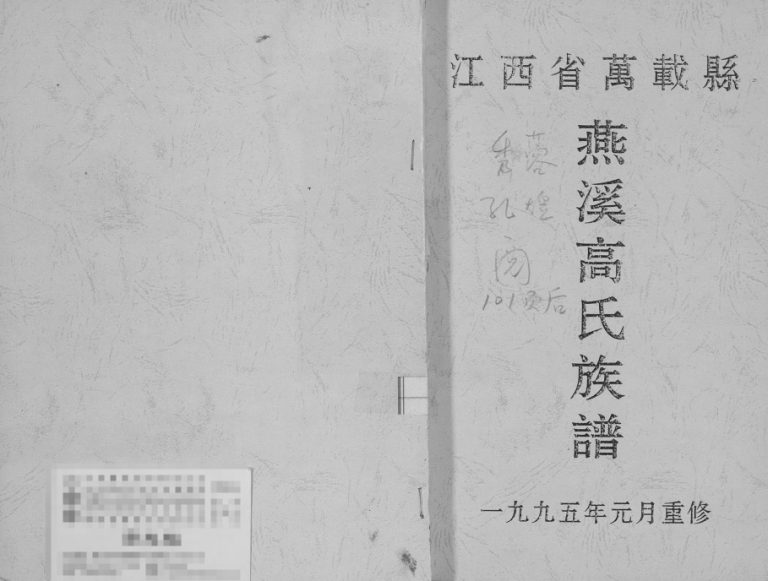 江西省萬載縣
燕溪高氏族譜
秀蓉
孔煌
阅
101页后
一九九五年元月重修